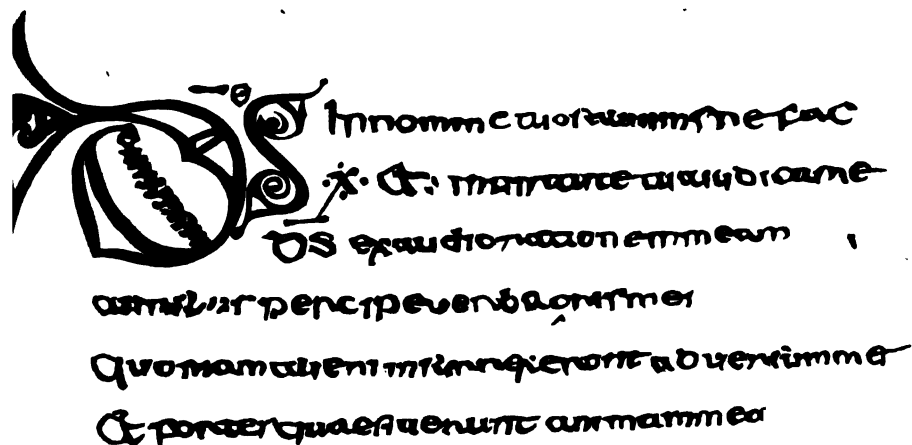 DS In nomine tuo saluum me fac
·X· et in uirtute tua iudica me
ds exaudi orationem meam
auribus percipe uerba oris mei
quoniam alieni insurrexerunt aduersum me
et fortes quaesierunt animam mea